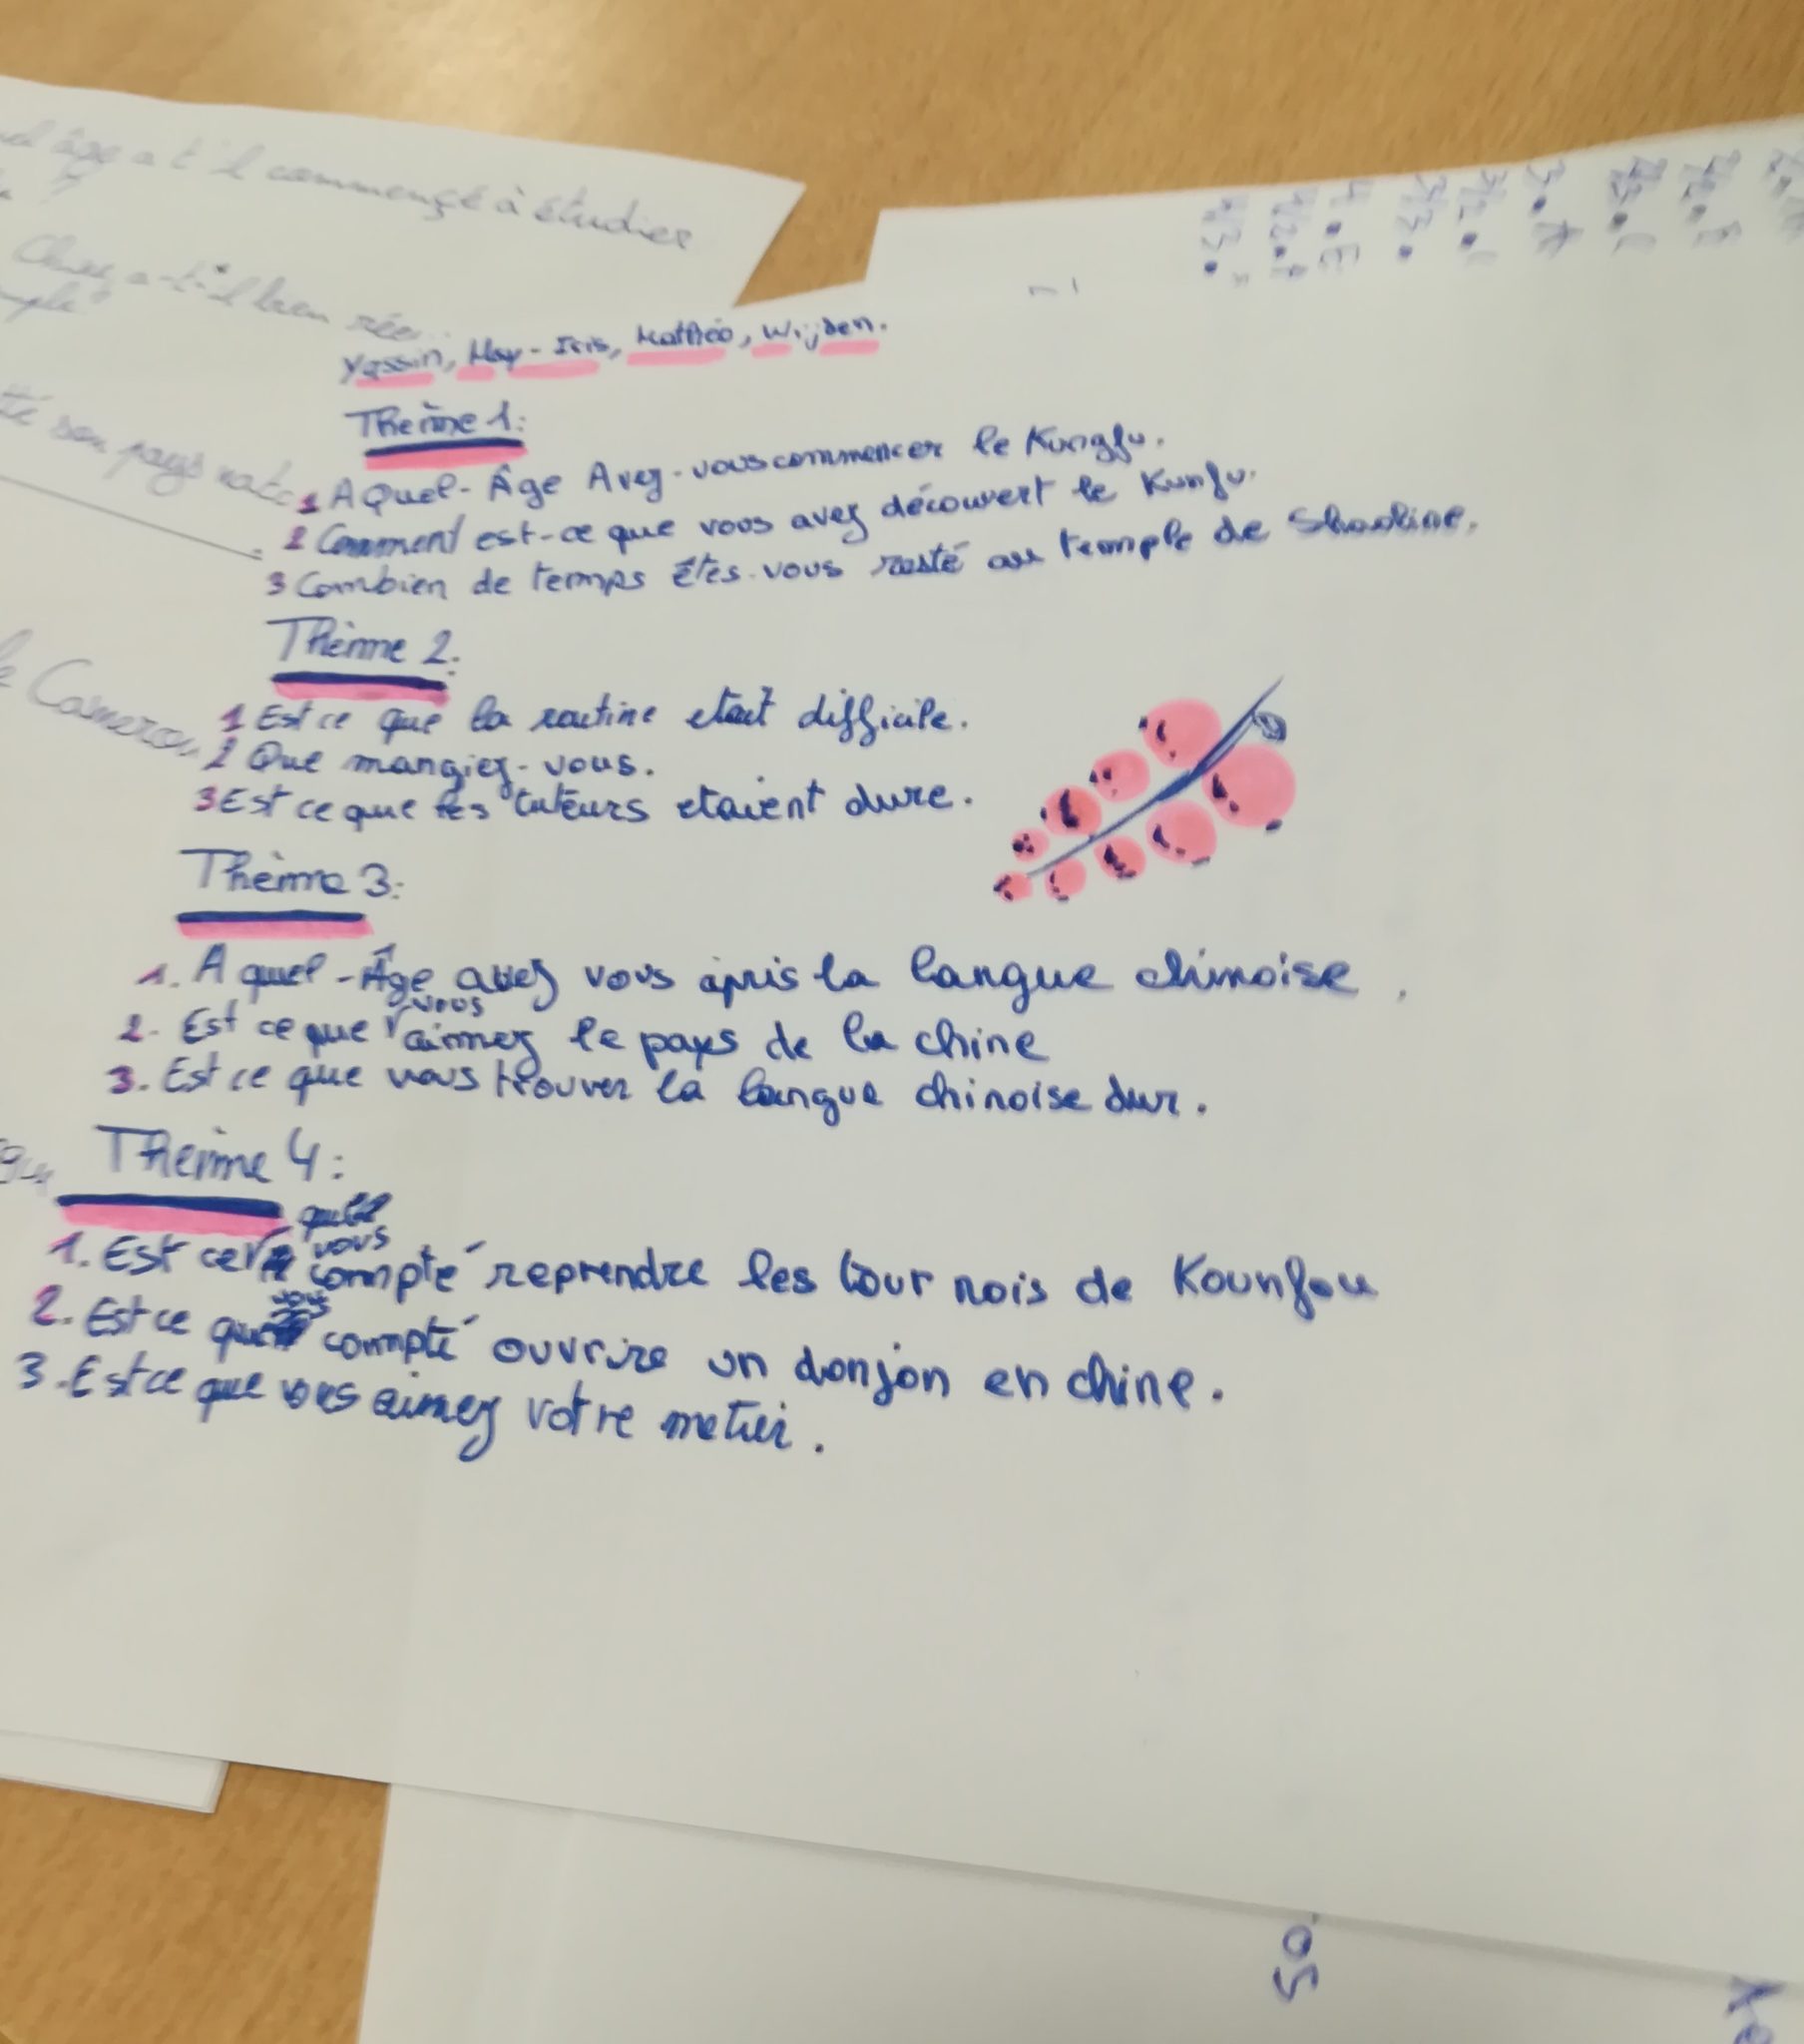 âge a t'il commencé à étudier
a-t-il bien
son pays
Yassin, May-Iris, Mathéo, Wijden.
Thème 1:
1 A Quel-Âge Avez-vous commencer le Kungfu.
2 Comment est-ce que vous avez découvert le Kunfu.
3 Combien de temps Êtes-vous resté au temple de Shaoline.
Thème 2:
1 Est ce que la routine etait difficile.
2 Que mangiez-vous.
3 Est ce que les tuteurs etaient dure.
Thème 3:
1. A quel-Âge avez vous apris la langue chinoise.
2. Est ce que vous aimez le pays de la chine
3. Est ce que vous trouver la langue chinoise dur.
Thème 4:
1. Est ce que vous compté reprendre les tournois de Kounfou
2. Est ce que vous compté ouvrire un donjon en chine.
3. Est ce que vous aimez votre metier.